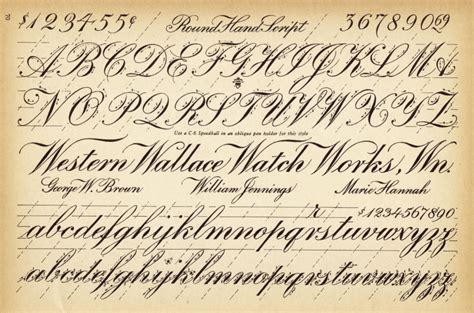 $123455¢ Round Hand Script 367890.69
ABCDEFGHIJKLM
NOPQRSTUVWXYZ
Use a C-6 Speedball in an oblique pen holder for this style
Western Wallace Watch Works, Wn.
George W. Brown William Jennings Marie Hannah
r $1234567890
abcdefghijklmnopqrstuvwxyzz
abcdefghijklmnopqrstuvwxyzz